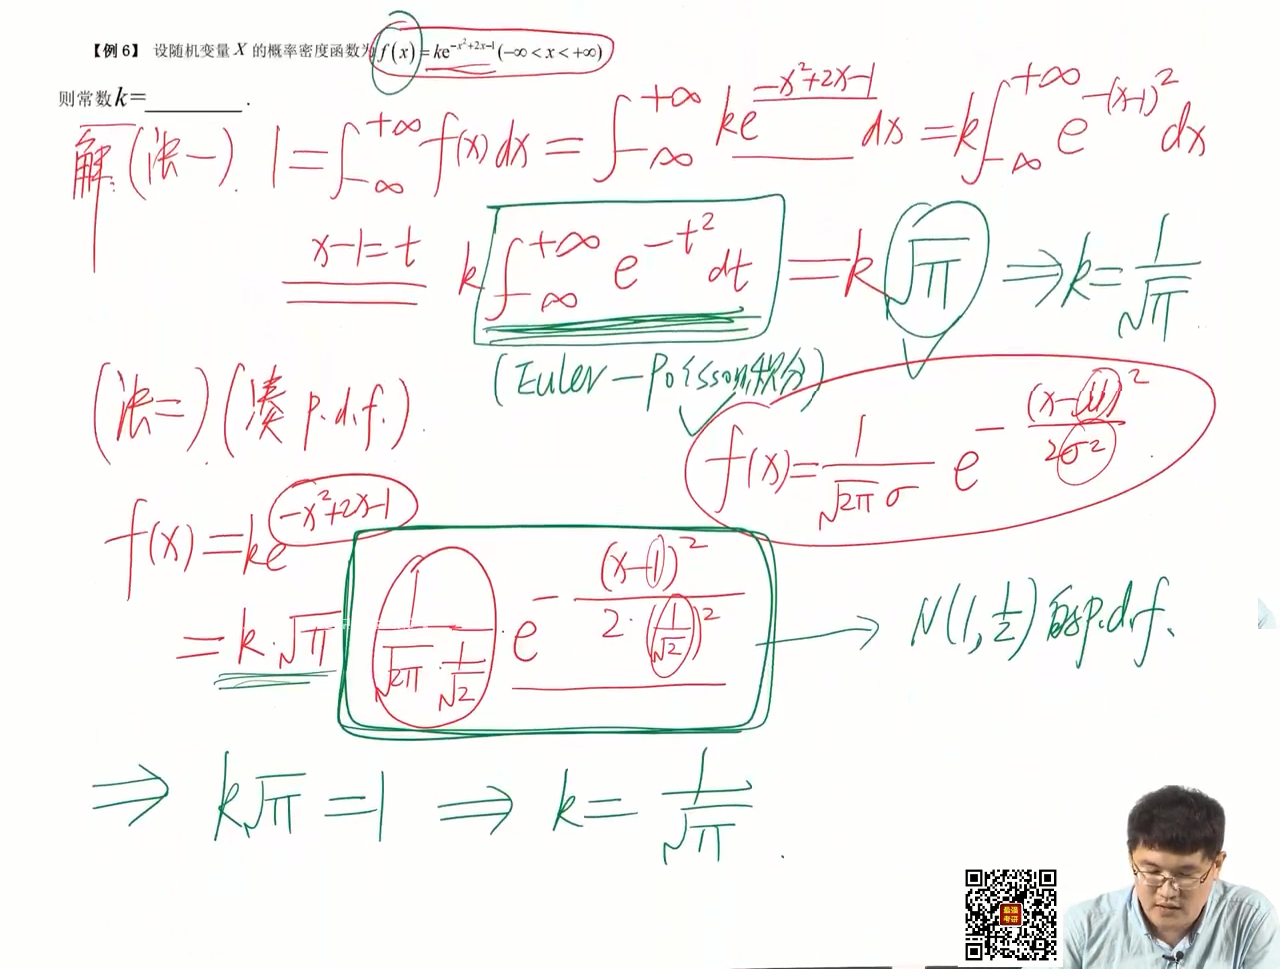 【例 6】 设随机变量 X 的概率密度函数为 f(x)=ke^{-x²+2x-1}(-∞<x<+∞)
则常数k=________.
解:(法一). 1=∫_{-∞}^{+∞} f(x)dx = ∫_{-∞}^{+∞} ke^{-x²+2x-1} dx = k∫_{-∞}^{+∞} e^{-(x-1)²} dx
x-1=t k∫_{-∞}^{+∞} e^{-t²} dt = k√π ⇒ k=1/√π.
(Euler-Poisson积分)
(法二)(凑 p.d.f.).
f(x)=1/(√2π σ) e^{-(x-μ)²/2σ²}.
f(x)=ke^{-x²+2x-1}
=k·√π 1/(√2π 1/√2)·e^{-(x-1)²/2·(1/√2)²} → N(1,1/2)的p.d.f.
⇒ k√π=1 ⇒ k=1/√π.
最强
考研